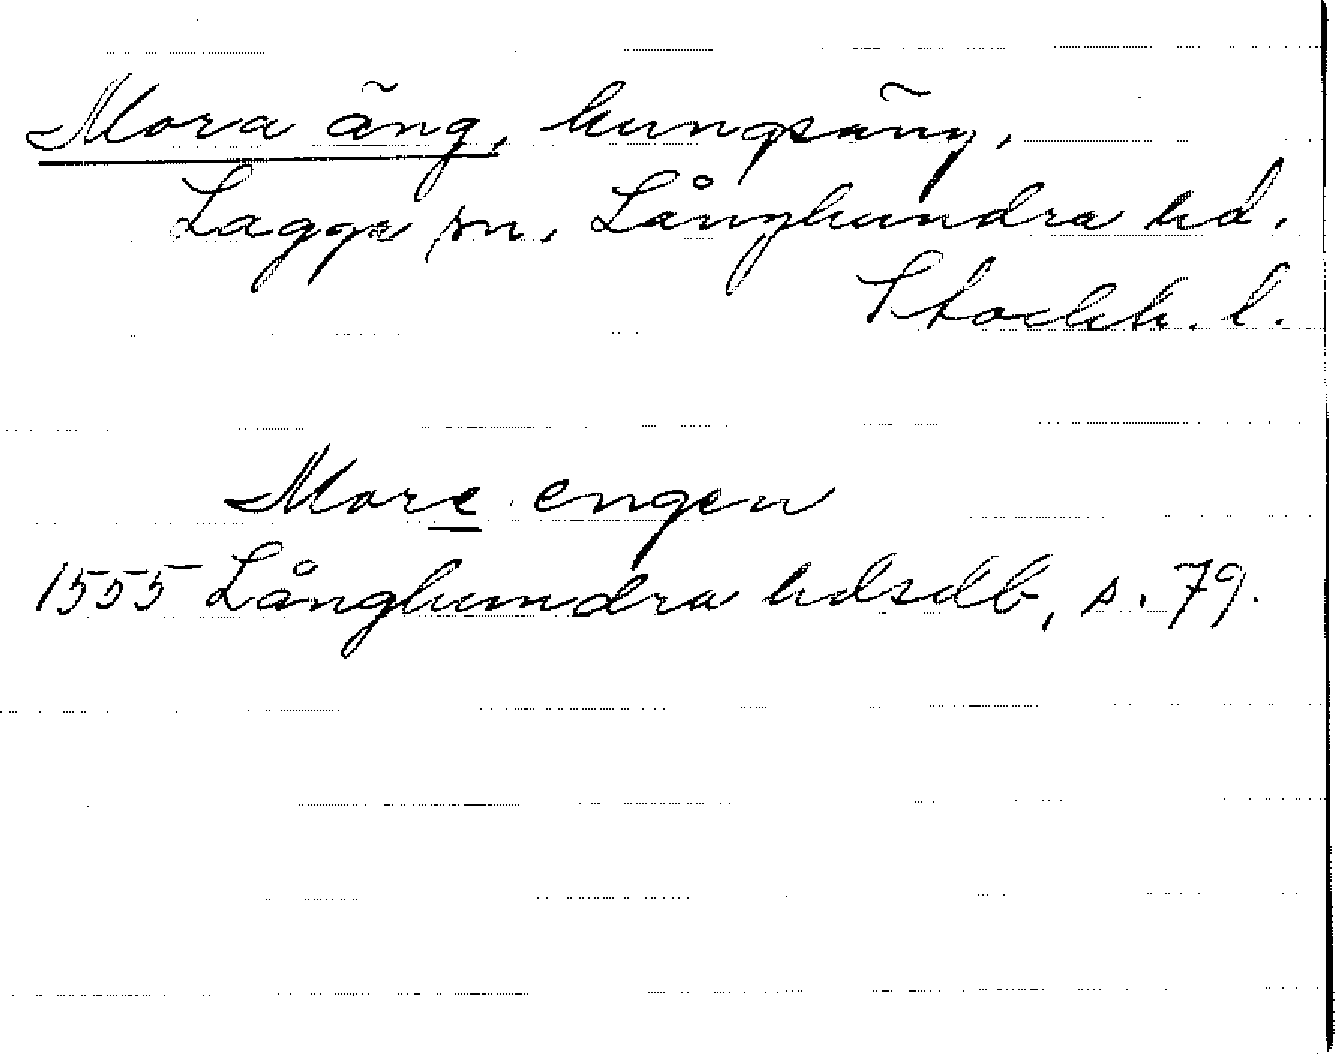 Mora äng, kungsäng,
Lagga sn, Långhundra hd.
Stockh. l.
More engen
1555 Långhundra hdsdb, s. 79.